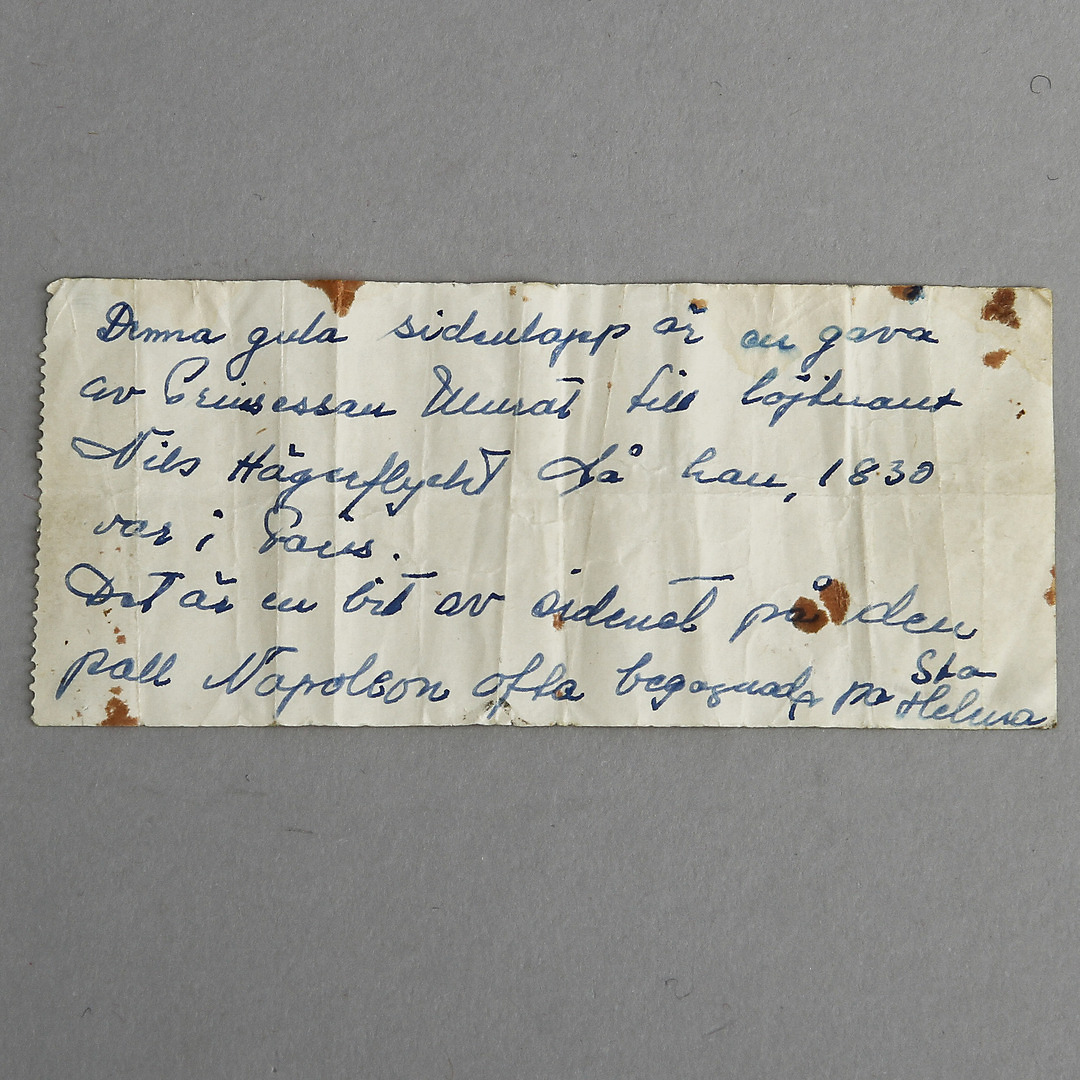 Denna gula sidenlapp är en gåva
av Prinsessan Murat till löjtnant
Nils Hägerflycht då han, 1830
var i Paris.
Det är en bit av sidenet på den
pall Napoleon ofta begagnade på Sta
Helena